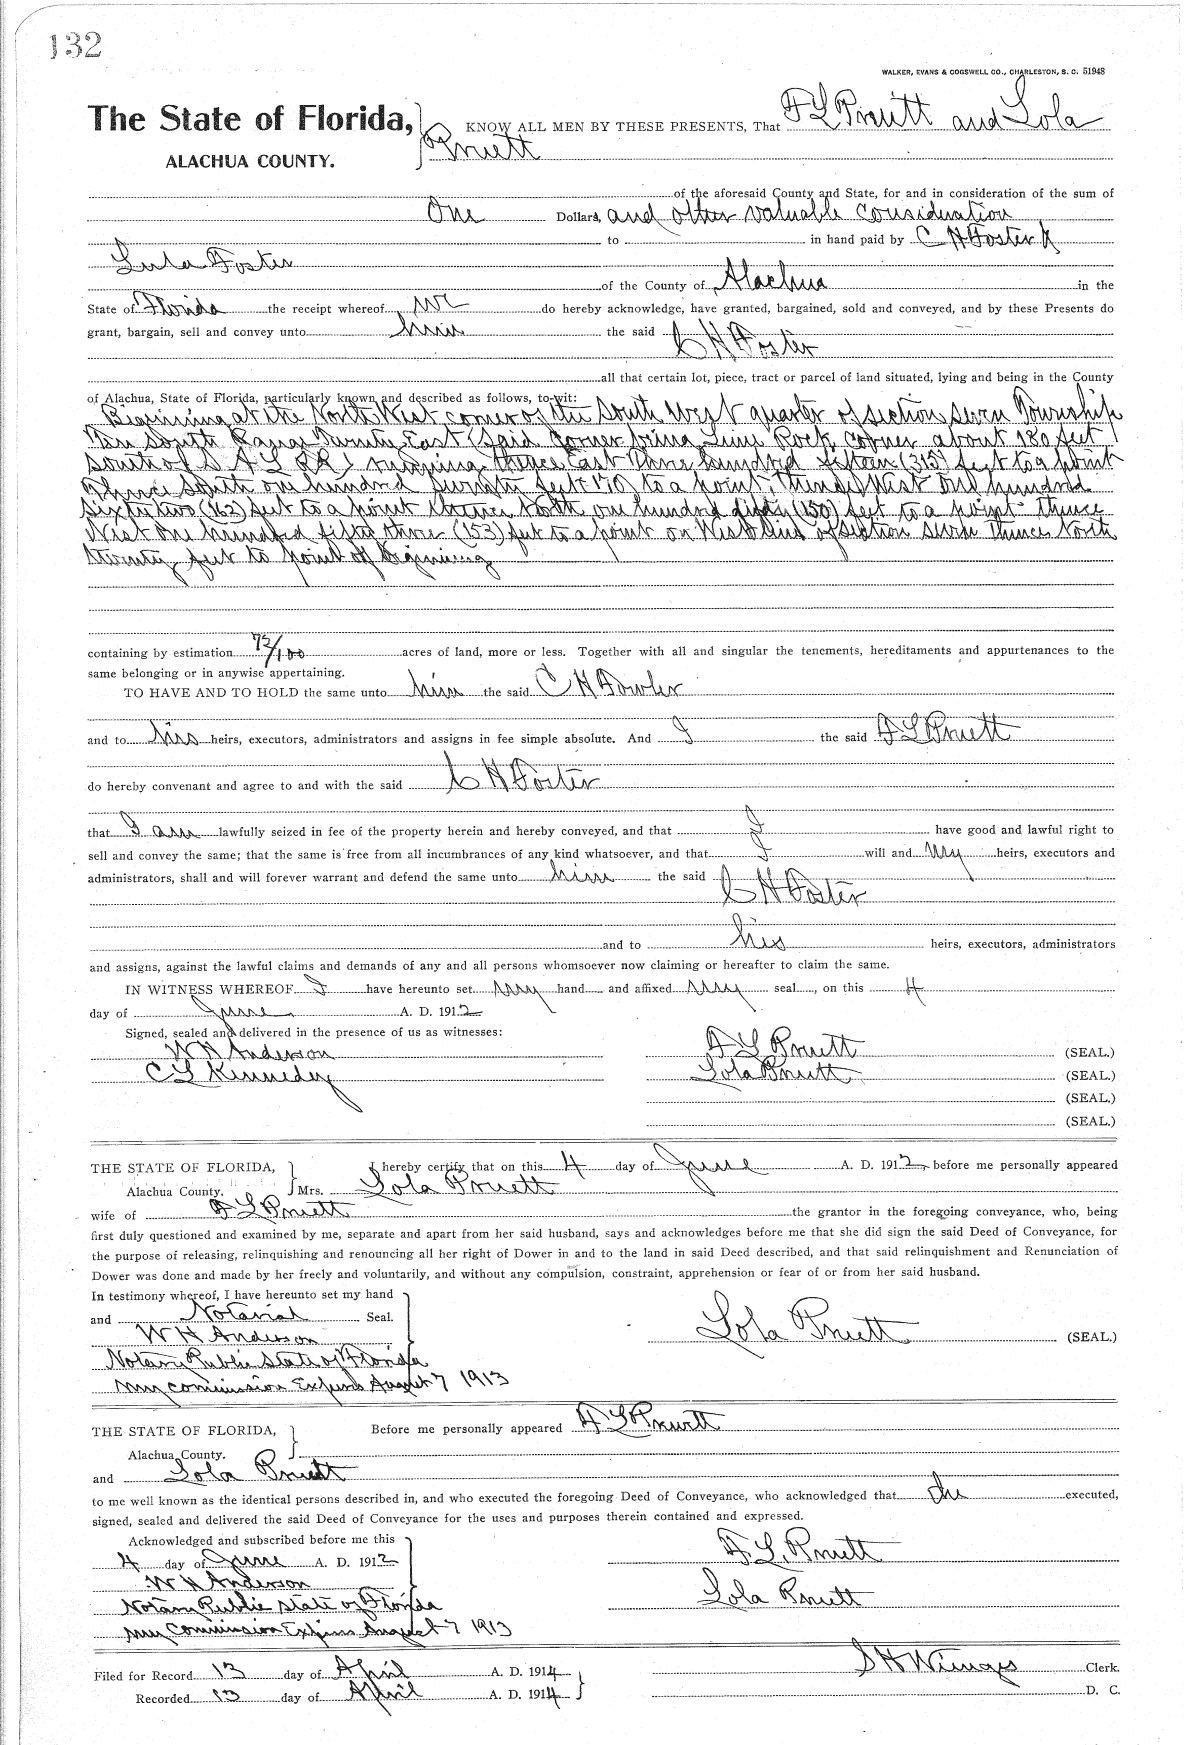 132
WALKER, EVANS & COGSWELL CO., CHARLESTON, S. C. 51948
The State of Florida, KNOW ALL MEN BY THESE PRESENTS, That F L Pruett and Lola
ALACHUA COUNTY. Pruett
of the aforesaid County and State, for and in consideration of the sum of
One Dollars, and other valuable consideration
to in hand paid by C H Foster &
Lula Foster
of the County of Alachua in the
State of Florida the receipt whereof we do hereby acknowledge, have granted, bargained, sold and conveyed, and by these Presents do
grant, bargain, sell and convey unto him the said C H Foster
all that certain lot, piece, tract or parcel of land situated, lying and being in the County
of Alachua, State of Florida, particularly known and described as follows, to-wit:
Beginning at the North West corner of the South West quarter of section seven Township
Ten South Range Twenty East (Said Corner being Lime Rock corner about 180 feet
South of S A L RR) running thence East Three hundred fifteen (315) feet to a point
Thence South one hundred seventy feet 170 to a point, thence West one hundred
Sixty two (162) feet to a point thence North one hundred fifty (150) feet to a point thence
West One hundred fifty three (153) feet to a point on West line of section seven thence North
twenty feet to point of Beginning
containing by estimation 72/100 acres of land, more or less. Together with all and singular the tenements, hereditaments and appurtenances to the
same belonging or in anywise appertaining.
TO HAVE AND TO HOLD the same unto him the said C H Fowler
and to his heirs, executors, administrators and assigns in fee simple absolute. And I the said F L Pruett
do hereby convenant and agree to and with the said C H Foster
that I am lawfully seized in fee of the property herein and hereby conveyed, and that I have good and lawful right to
sell and convey the same; that the same is free from all incumbrances of any kind whatsoever, and that I will and My heirs, executors and
administrators, shall and will forever warrant and defend the same unto him the said C H Foster
and to his heirs, executors, administrators
and assigns, against the lawful claims and demands of any and all persons whomsoever now claiming or hereafter to claim the same.
IN WITNESS WHEREOF I have hereunto set my hand and affixed my seal, on this 4
day of June A. D. 1912
Signed, sealed and delivered in the presence of us as witnesses:
W H Anderson F L Pruett (SEAL.)
C L Kennedy Lola Pruett (SEAL.)
(SEAL.)
(SEAL.)
THE STATE OF FLORIDA, I hereby certify that on this 4 day of June A. D. 1912 before me personally appeared
Alachua County. Mrs. Lola Pruett
wife of F L Pruett the grantor in the foregoing conveyance, who, being
first duly questioned and examined by me, separate and apart from her said husband, says and acknowledges before me that she did sign the said Deed of Conveyance, for
the purpose of releasing, relinquishing and renouncing all her right of Dower in and to the land in said Deed described, and that said relinquishment and Renunciation of
Dower was done and made by her freely and voluntarily, and without any compulsion, constraint, apprehension or fear of or from her said husband.
In testimony whereof, I have hereunto set my hand
and Notarial Seal.
W H Anderson Lola Pruett (SEAL.)
Notary Public State of Florida
My commission Expires August 7 1913
THE STATE OF FLORIDA, Before me personally appeared F L Pruett
Alachua County.
and Lola Pruett
to me well known as the identical persons described in, and who executed the foregoing Deed of Conveyance, who acknowledged that executed,
signed, sealed and delivered the said Deed of Conveyance for the uses and purposes therein contained and expressed.
Acknowledged and subscribed before me this
4 day of June A. D. 1912 F. L. Pruett
W H Anderson
Notary Public State of Florida Lola Pruett
My Commission Expires August 7 1913
Filed for Record 13 day of April A. D. 1914 S H Wienges Clerk.
Recorded 13 day of April A. D. 1914 D. C.